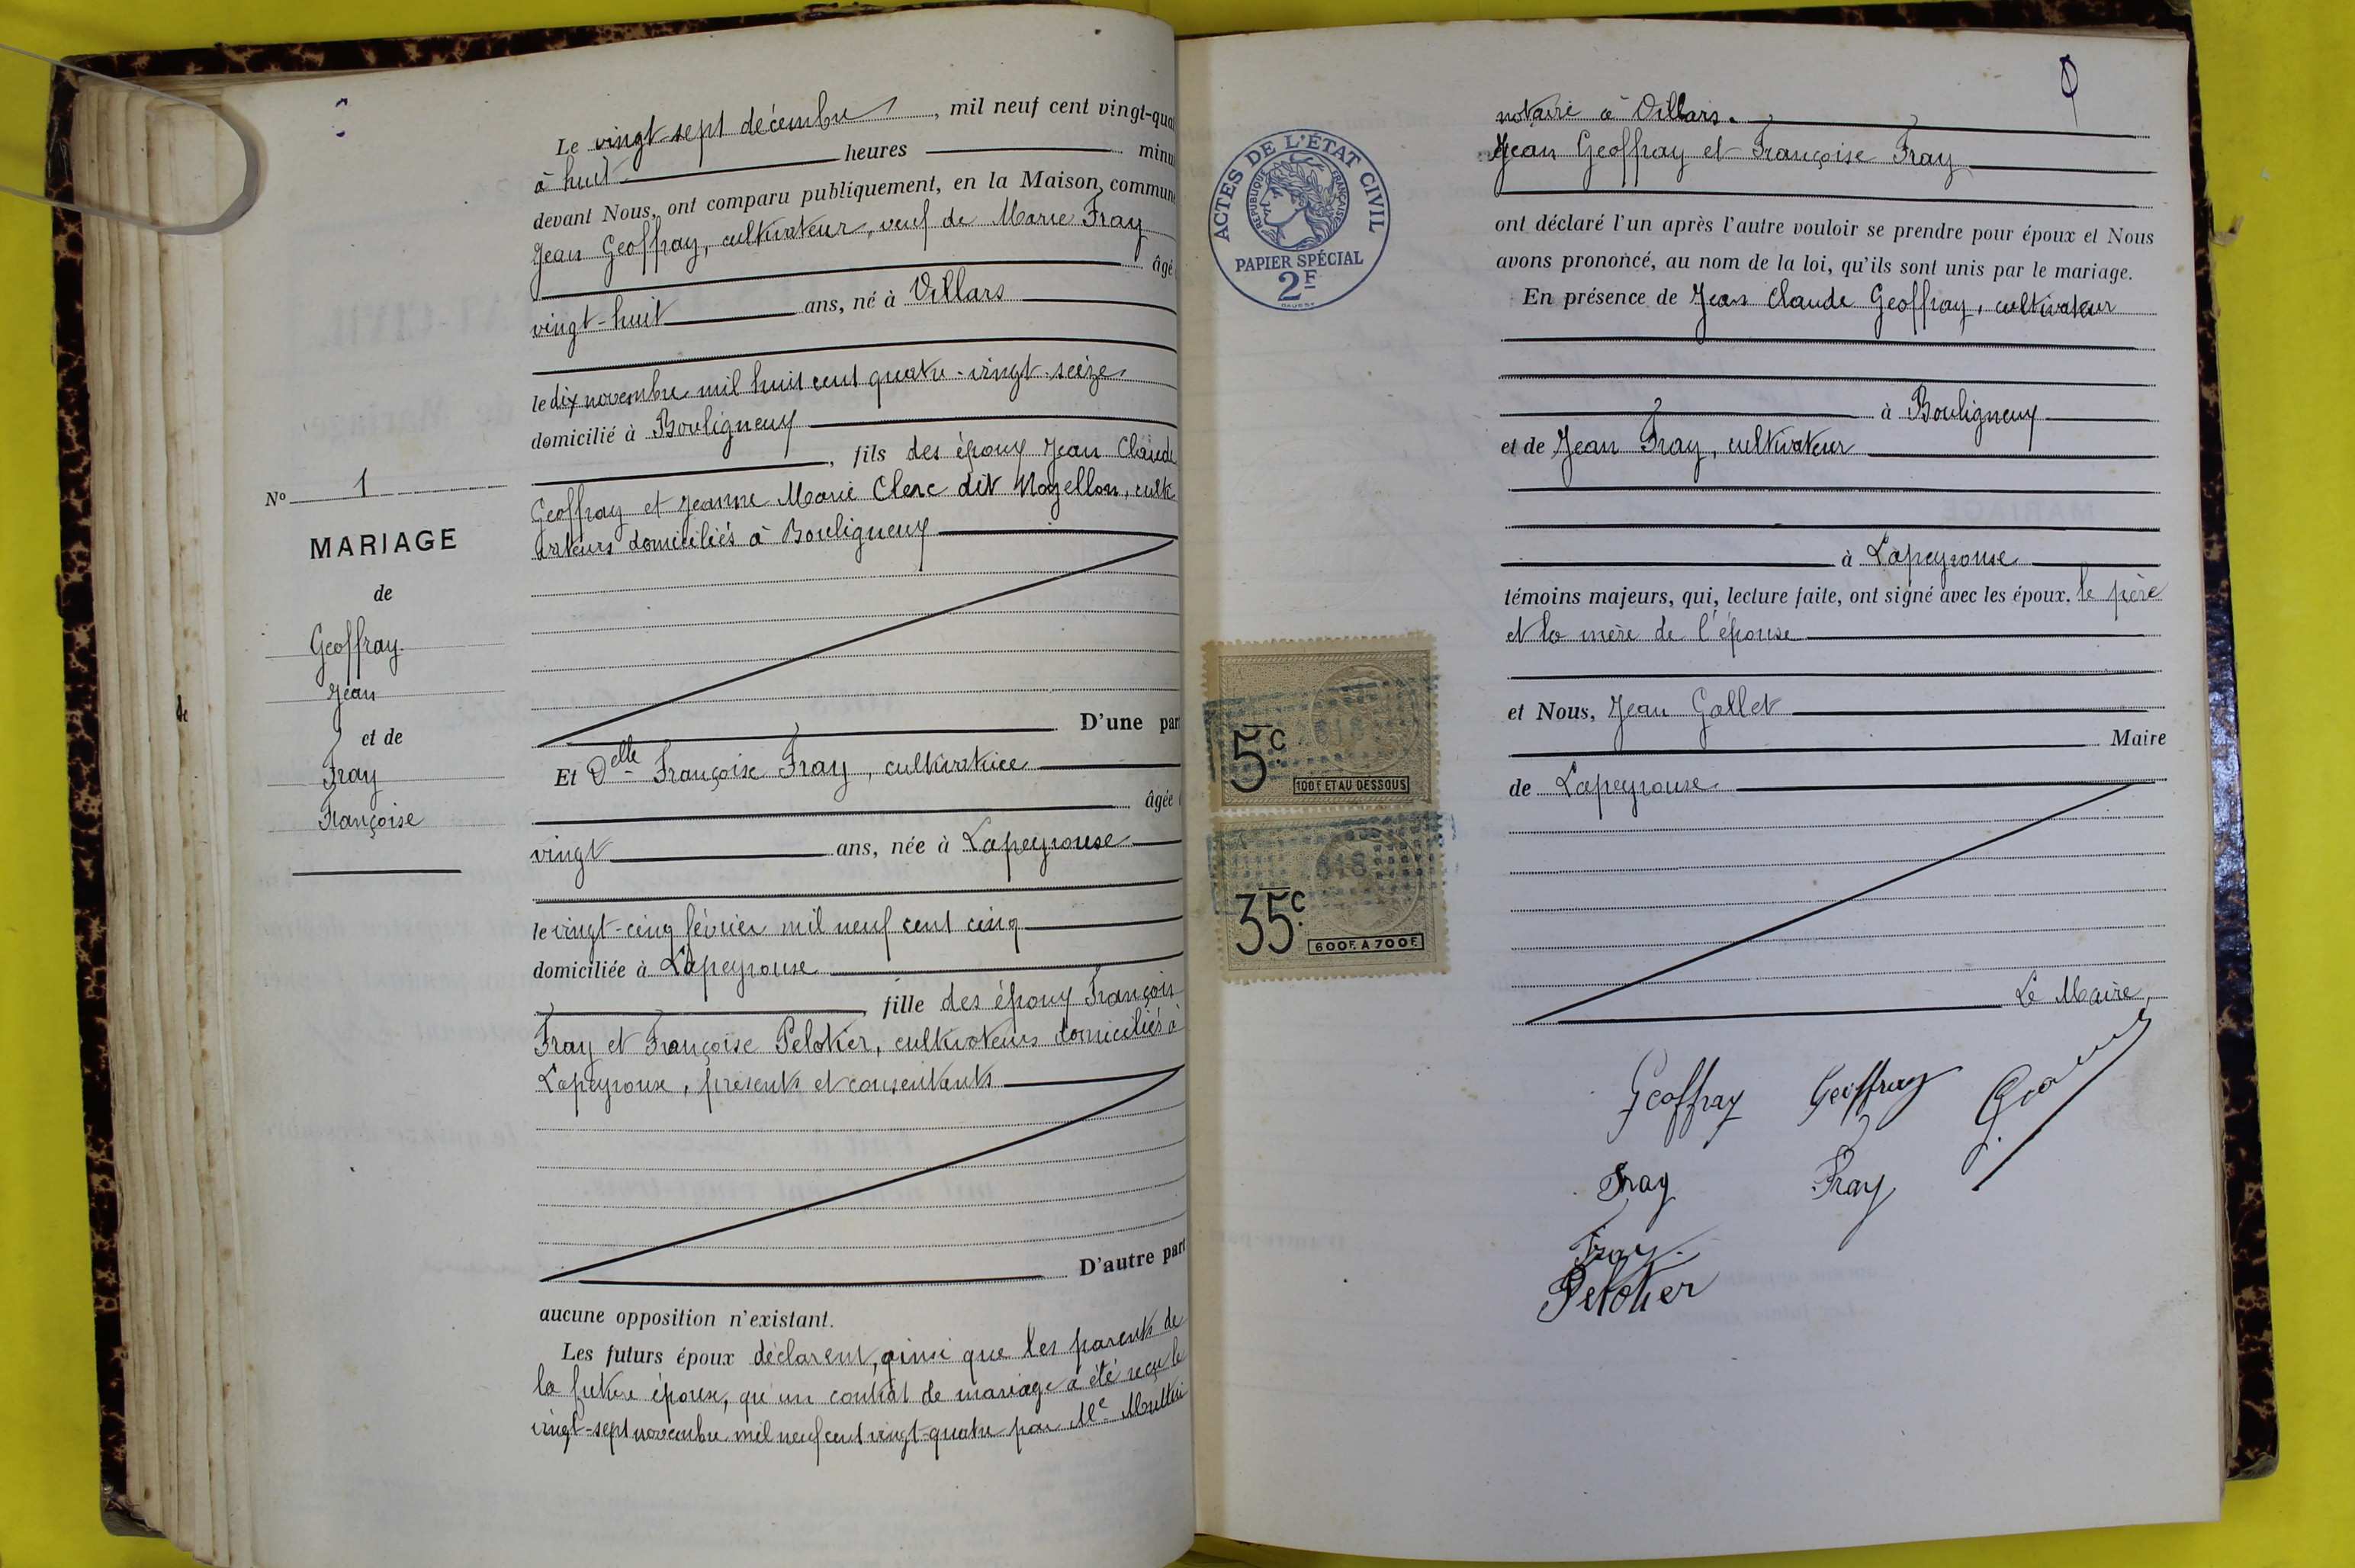 Le vingt-sept décembre, mil neuf cent vingt-qua
à huit heures minu
devant Nous, ont comparu publiquement, en la Maison commun
Jean Geoffray, cultivateur, veuf de Marie Fray
âgé
vingt-huit ans, né à Villars
le dix novembre mil huit cent quatre-vingt-seize
domicilié à Bouligneux
, fils des époux Jean Claude
Geoffray et Jeanne Marie Clerc dit Nozellon, culti-
vateurs domiciliés à Bouligneux
No 1
MARIAGE
de
Geoffray
Jean
et de
Fray
Françoise
D'une par
Et Delle Françoise Fray, cultivatrice
âgée
vingt ans, née à Lapeyrouse
le vingt-cinq février mil neuf cent cinq
domiciliée à Lapeyrouse
, fille des époux François
Fray et Françoise Pelotier, cultivateurs domiciliés à
Lapeyrouse, présents et consentants
D'autre part
aucune opposition n'existant.
Les futurs époux déclarent, ainsi que les parents de
la future épouse, qu'un contrat de mariage a été reçu le
vingt-sept novembre mil neuf cent vingt-quatre par Me
notaire à Villars.
Jean Geoffray et Françoise Fray
ont déclaré l'un après l'autre vouloir se prendre pour époux et Nous
avons prononcé, au nom de la loi, qu'ils sont unis par le mariage.
En présence de Jean Claude Geoffray, cultivateur
à Bouligneux
et de Jean Fray, cultivateur
à Lapeyrouse
témoins majeurs, qui, lecture faite, ont signé avec les époux, le père
et la mère de l'épouse
et Nous, Jean Gallet
Maire
de Lapeyrouse
Le Maire,
Geoffray Geoffray
Fray Fray
Fray
Pelotier
ACTES DE L'ÉTAT CIVIL
RÉPUBLIQUE FRANÇAISE
PAPIER SPÉCIAL
2F
618
5c
100F ET AU DESSOUS
618
35c
600F. A 700F.